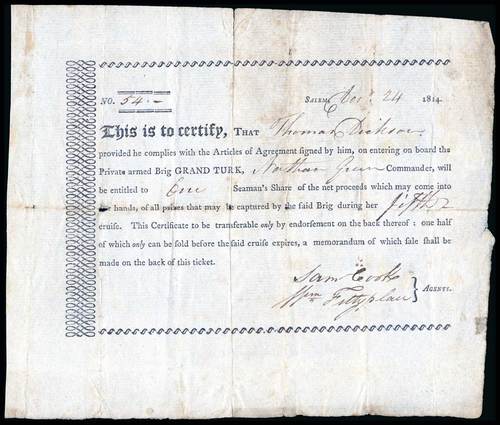 NO. 54.
SALEM, Decr. 24 1814.
This is to certify, THAT Thomas Dickson
provided he complies with the Articles of Agreement signed by him, on entering on board the
Private armed Brig GRAND TURK, Nathan Green Commander, will
be entitled to One Seaman's Share of the net proceeds which may come into
our hands, of all prizes that may be captured by the said Brig during her fifth
cruise. This Certificate to be transferable only by endorsement on the back thereof: one half
of which only can be sold before the said cruise expires, a memorandum of which sale shall
be made on the back of this ticket.
Sam Cook
Wm Fettyplace } AGENTS.